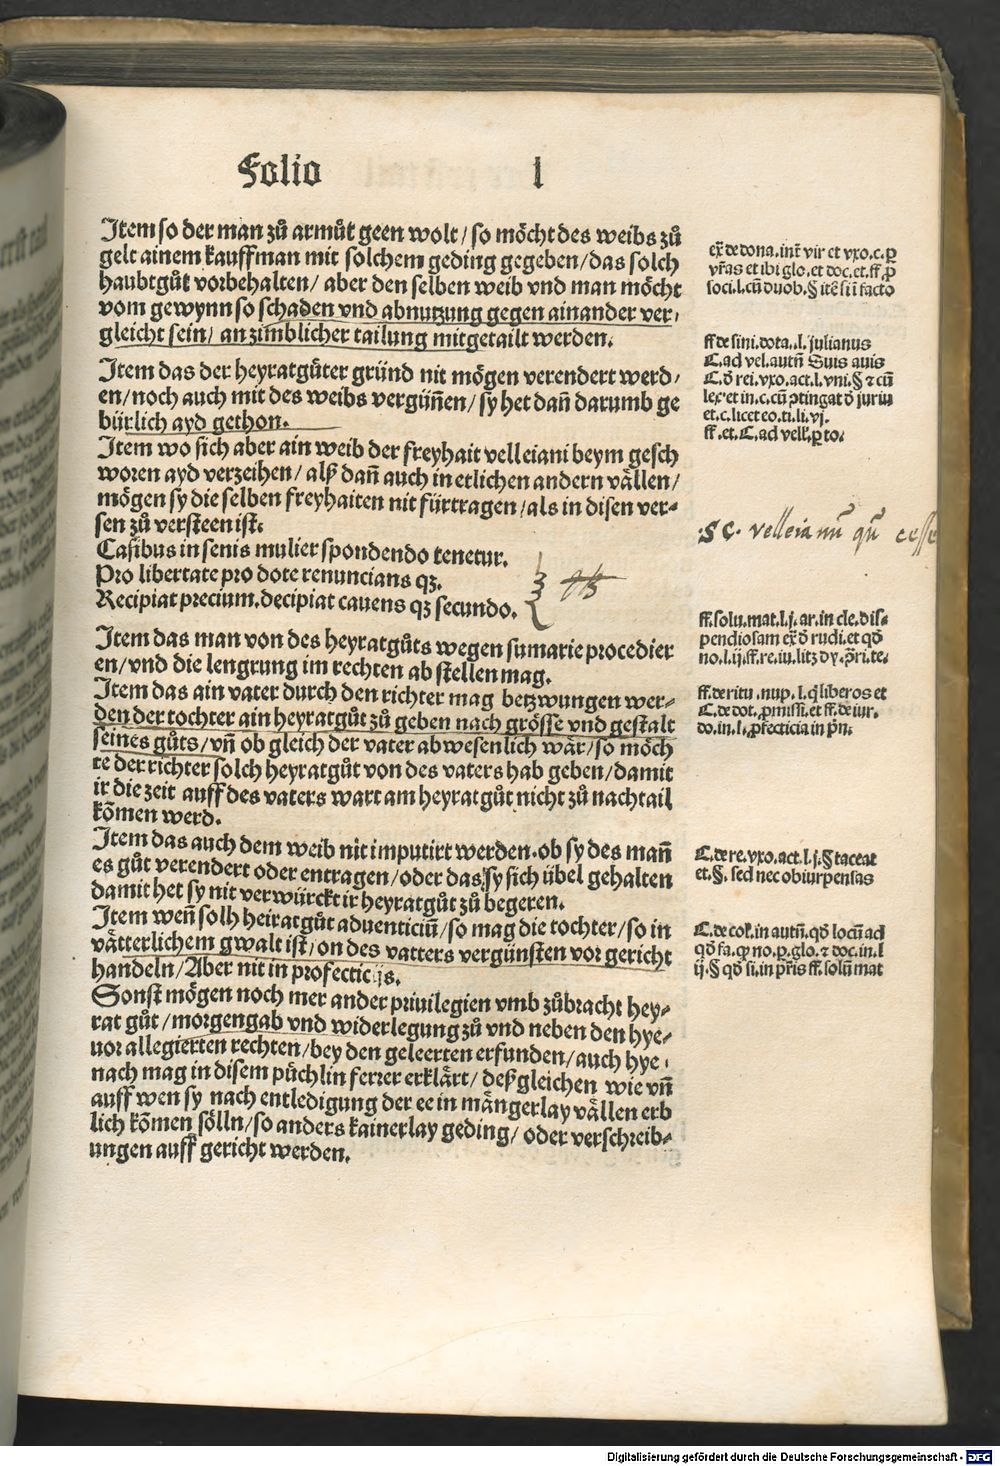 Folio l
Item so der man zů armůt geen wolt / so möcht des weibs zů
gelt ainem kauffman mit solchem geding gegeben / das solch
haubtgůt vorbehalten / aber den selben weib vnd man möcht
vom gewynn so schaden vnd abnutzung gegen ainander ver,
gleicht sein / an zimblicher tailung mitgetailt werden.
Item das der heyratgůter gründ nit mögen verendert werd /
en / noch auch mit des weibs vergüñen / sy het dañ darumb ge
bürlich ayd gethon.
Item wo sich aber ain weib der freyhait velleiani beym gesch
woren ayd verzeihen / alß dañ auch in etlichen andern vällen /
mögen sy die selben freyhaiten nit fürtragen / als in disen ver⸗
sen zů versteen ist.
Casibus in senis mulier spondendo tenetur.
Pro libertate pro dote renuncians qz.
Recipiat precium. decipiat cauens qz secundo.
Item das man von des heyratgůts wegen sumarie procedier
en / vnd die lengrung im rechten ab stellen mag.
Item das ain vater durch den richter mag betzwungen wer⸗
den der tochter ain heyratgůt zů geben nach grösse vnd gestalt
seines gůts / vñ ob gleich der vater abwesenlich wär / so möch
te der richter solch heyratgůt von des vaters hab geben / damit
ir die zeit auff des vaters wart am heyratgůt nicht zů nachtail
kõmen werd.
Item das auch dem weib nit imputirt werden. ob sy des mañ
es gůt verendert oder entragen / oder das sy sich übel gehalten
damit het sy nit verwürckt ir heyratgůt zů begeren.
Item weñ solh heiratgůt aduenticiũ / so mag die tochter / so in
vätterlichem gwalt ist / on des vatters vergünsten vor gericht
handeln / Aber nit in profecticijs.
Sonst mögen noch mer ander priuilegien vmb zůbracht hey⸗
rat gůt / morgengab vnd widerlegung zů vnd neben den hye⸗
uor allegierten rechten / bey den geleerten erfunden / auch hye,
nach mag in disem püchlin ferrer erklärt / deßgleichen wie vñ
auff wen sy nach entledigung der ee in mängerlay vällen erb
lich kõmen sölln / so anders kainerlay geding / oder verschreib⸗
ungen auff gericht werden.
ex̃ de dona. int̃ vir et vxo. c. ꝑ
vr̃as et ibi glo. et doc. et. ff. ꝓ
soci. l. cũ duob. § itẽ si ĩ facto
ff de fini. dota. . l. julianus
C. ad vel. autñ Suis auis
C. õ rei. vxo. act. l. vni. § ⁊ cũ
lex̃ et in. c. cũ ꝯtingat õ juriu
et. c. licet eo. ti. li. vj.
ff. et. C. ad vell. ꝑ to.
.SC. velleianũ qũ cesse
ff. solu. mat. l. j. ar. in cle. dis⸗
pendiosam ex̃ õ iudi. et qõ
no. l. ij. ff. re. iu. litz dy. p̃ri. te.
ff. de ritu. nup. l. q̃ liberos et
C. de dot. ꝓmissi. et ff. de iur.
do. in. l. ꝓfecticia in p̃n.
C. de re. vxo. act. l. j. § taceat
et. §. sed nec obiurpensas
C. de col. in autñ. qõ locũ ad
qõ fa. ꝙ no. ꝑ. glo. ⁊ doc. in. l
ij. § qõ si. in p̃ris ff. solũ mat
Digitalisierung gefördert durch die Deutsche Forschungsgemeinschaft - DFG